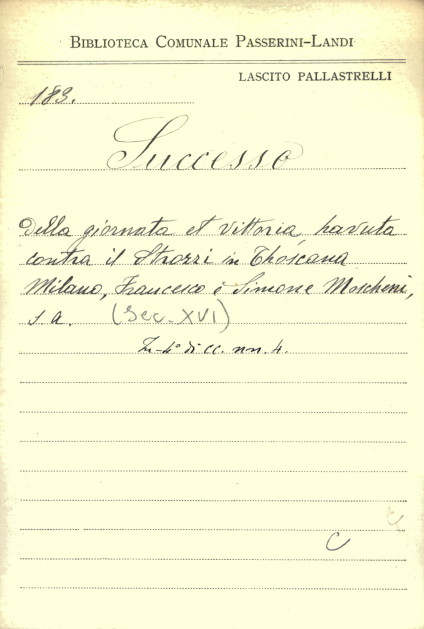 BIBLIOTECA COMUNALE PASSERINI-LANDI
LASCITO PALLASTRELLI
183.
Successo
Della giornata et vittoria havuta
contra il Strozzi in Thoscana
Milano, Francesco e Simone Moscheni,
s. a. (Sec. XVI)
In-4° di cc. nn. 4.
C
C